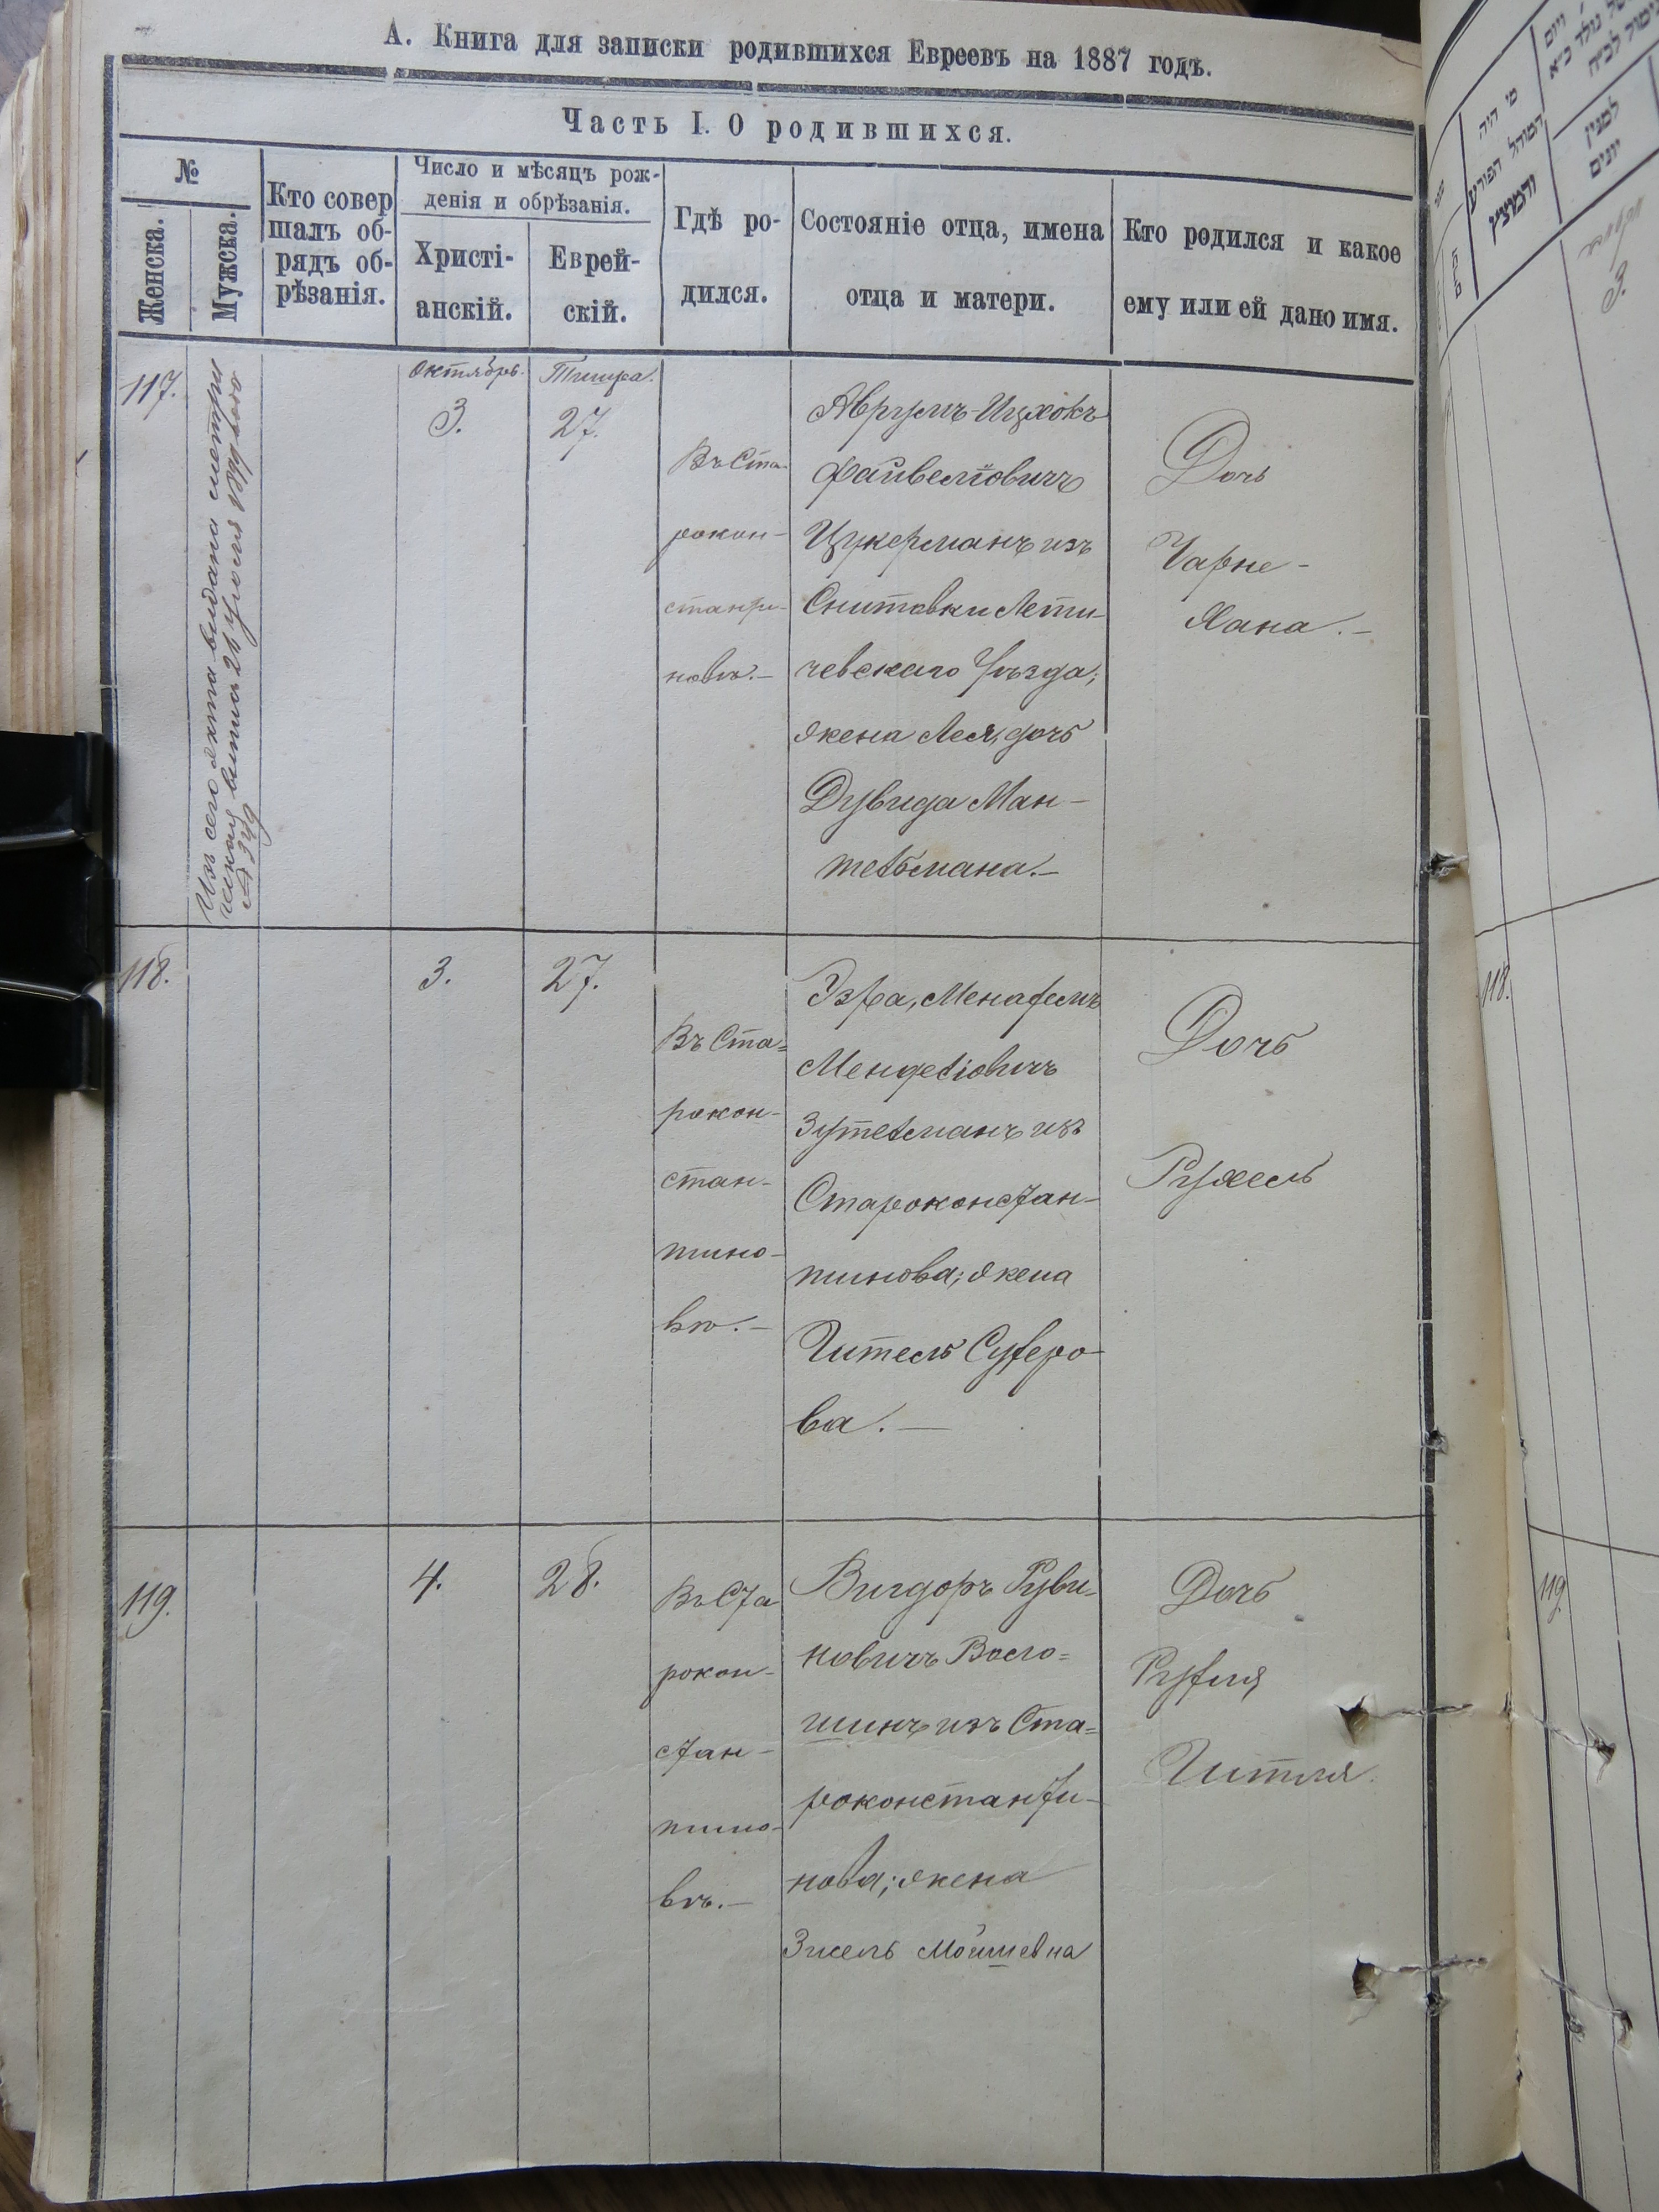 А. Книга для записки родившихся Евреевъ на 1887 годъ.
Часть I. О родившихся.
№
Женска.
Мужска.
Кто совер
шалъ об-
рядъ об-
рѣзанія.
Число и мѣсяцъ рож-
денія и обрѣзанія.
Христі-
анскій.
Еврей-
скій.
Гдѣ ро-
дился.
Состояніе отца, имена
отца и матери.
Кто родился и какое
ему или ей дано имя.
117.
Изъ сего акта видана метри
ческая випись 21
№ 349
Октябрь.
3.
Тишра.
27.
Въ Ста-
рокон-
станти-
новъ.-
Аврумъ-Ицхокъ
Файвелiовичъ
Цукерманъ изъ
Снитовки Лети-
чевскаго Уѣзда;
жена Лея, дочь
Дувида Ман-
тельмана.-
Дочь
Чарне-
Хана.-
118.
3.
27.
Въ Ста=
рокон-
стан-
тино-
вѣ.-
Эзра, Менахемъ
Менделіовичъ
Зутельманъ изъ
Староконстан-
тинова; жена
Гитель
ва.-
Дочь
Рухель
119.
4.
28.
Въ Ста
рокон-
стан-
тино-
вѣ.-
Вигдоръ Руви-
новичъ Воло=
шинъ изъ Ста=
роконстанти-
нова; жена
Зисель Мойшевна
Дочь
Рухля
Гитля.
118.
119.